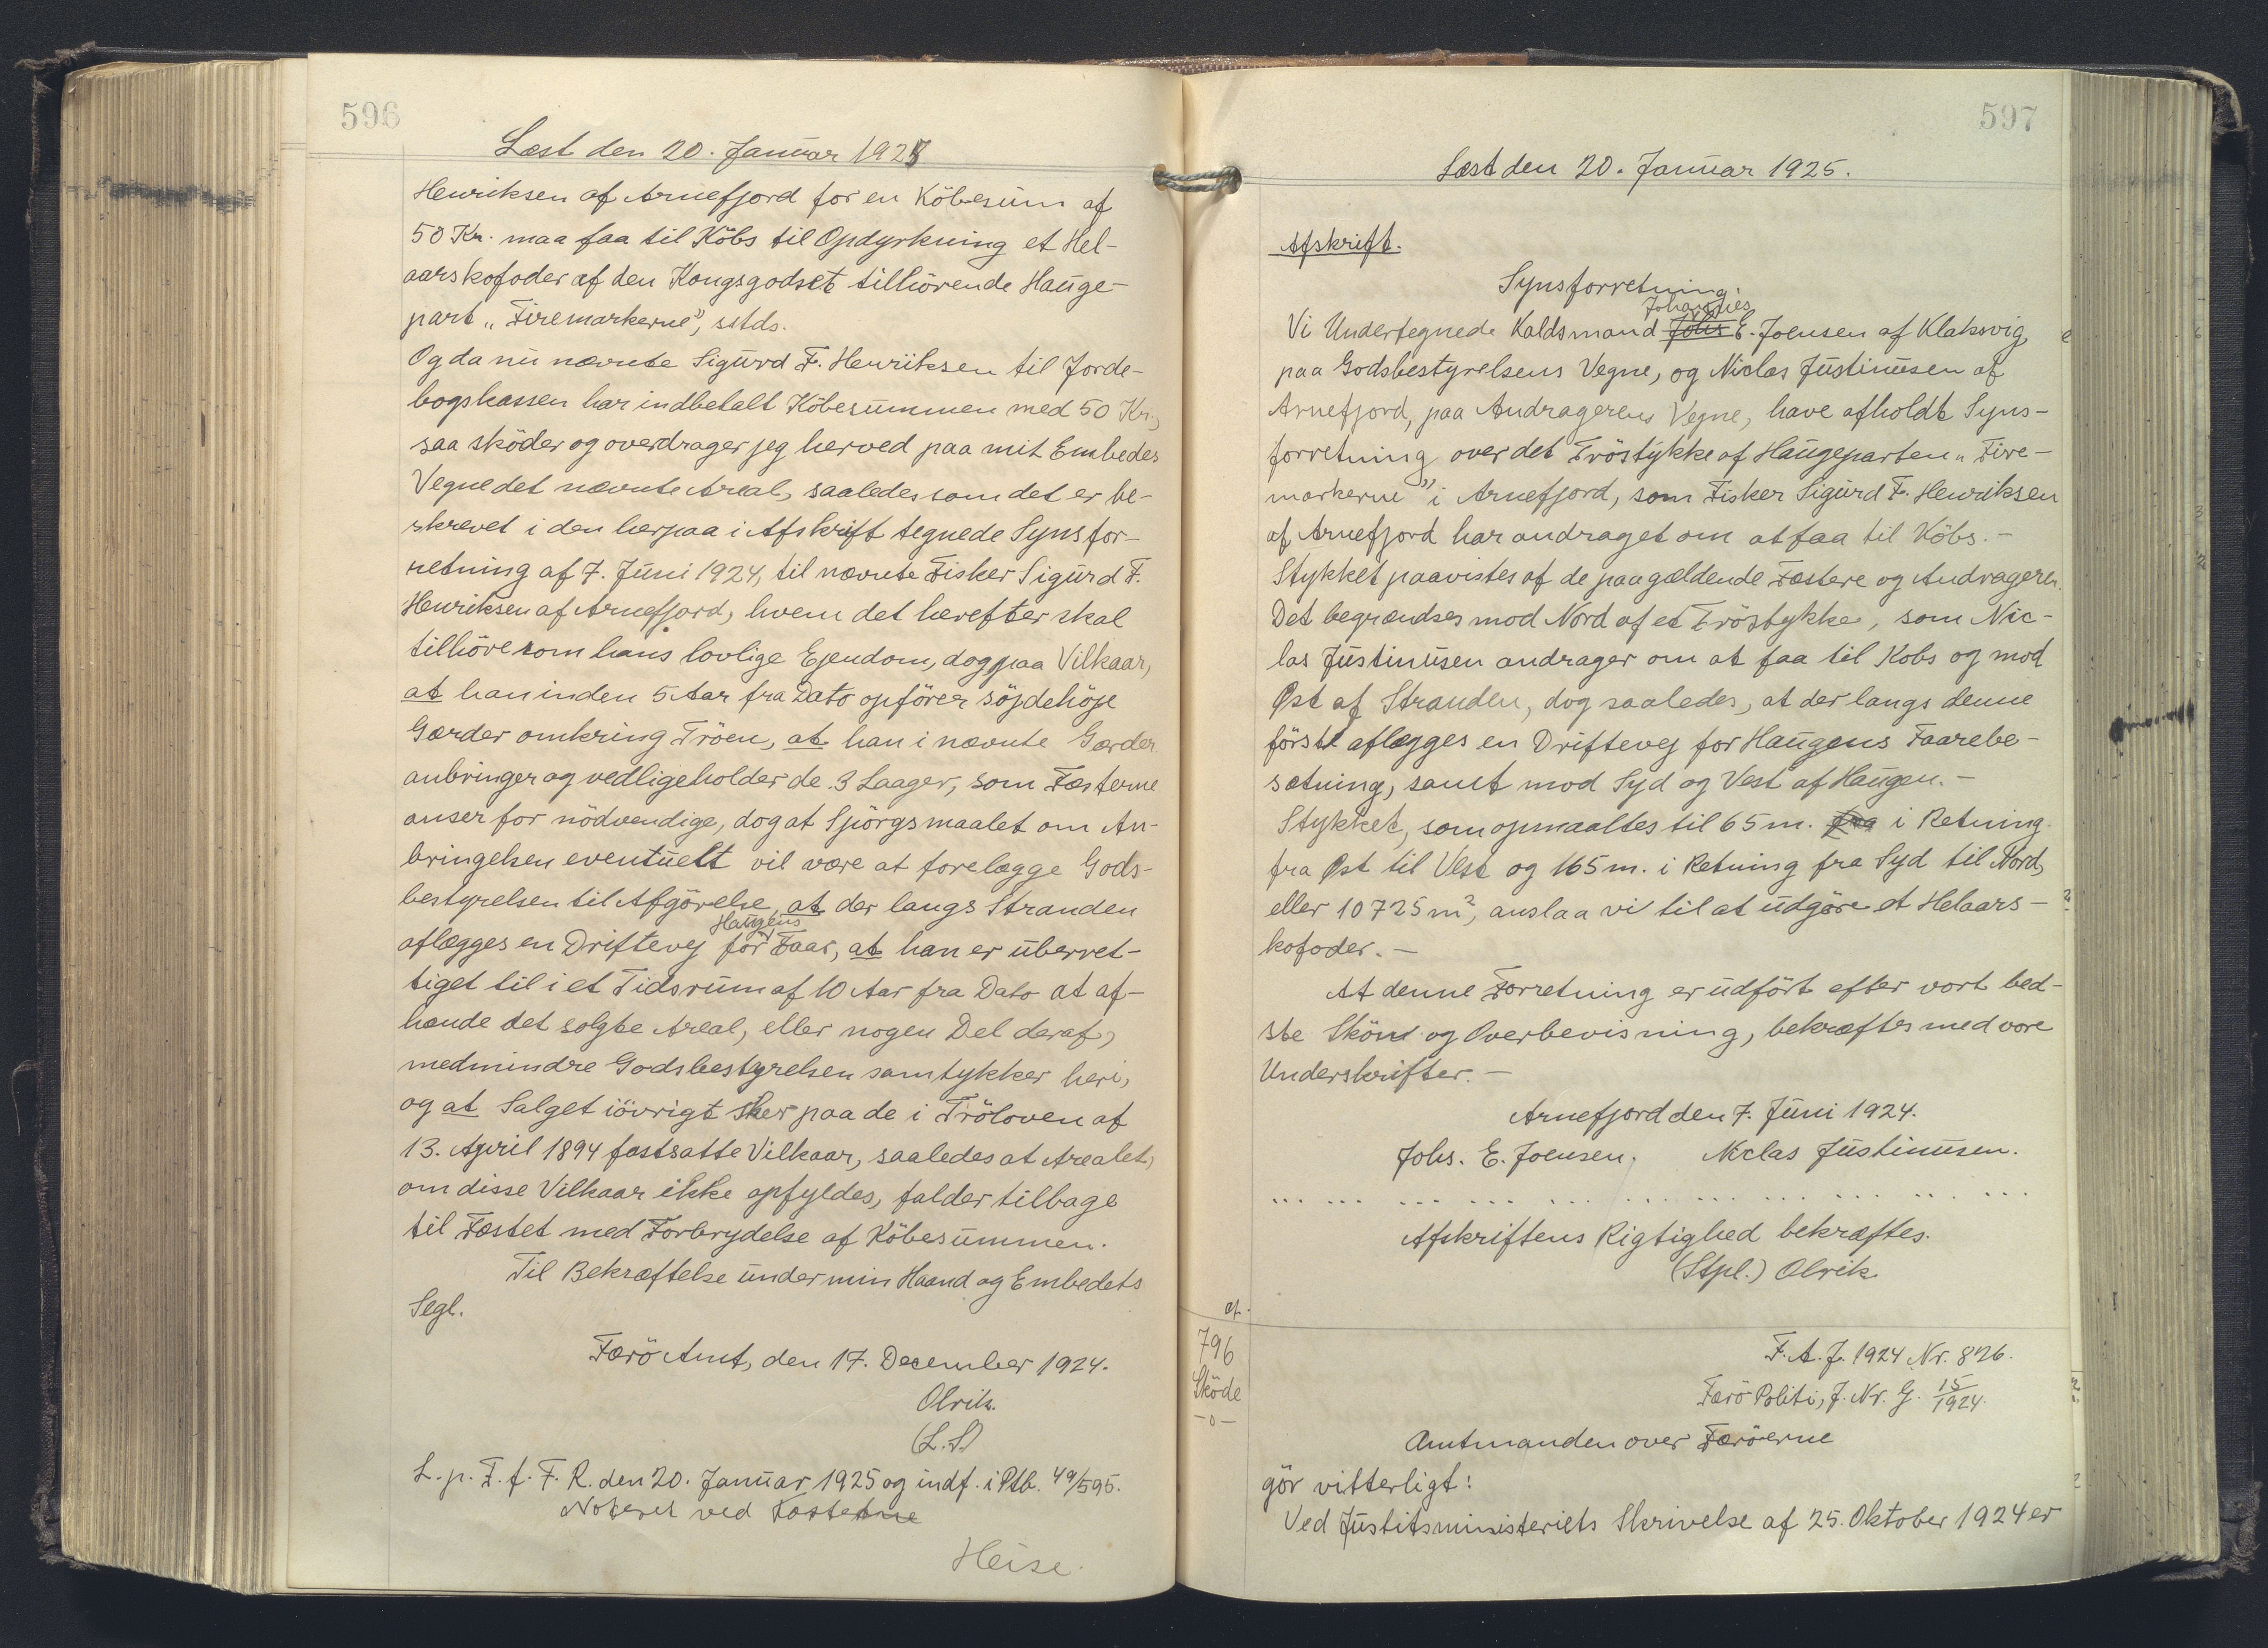 596
Læst den 20. Januar 1925
Henriksen af Arnefjord for en Köbesum af
50 Kr. maa faa til Köbs til Opdyrkning et Hel-
aarskofoder af den Kongsgodset tilhörende Hauge-
part „Firemarkerne”, sstds.
Og da nu nævnte Sigurd F. Henriksen til Jorde-
bogskassen har indbetalt Köbesummen med 50 Kr.,
saa sköder og overdrager jeg herved paa mit Embedes
Vegne det nævnte Areal, saaledes som det er be-
skrevet i den herpaa i Afskrift tegnede Synsfor-
retning af 7. Juni 1924, til nævnte Fisker Sigurd F.
Henriksen af Arnefjord, hvem det herefter skal
tilhöre som hans lovlige Ejendom, dog paa Vilkaar,
at han inden 5 Aar fra Dato opförer söjdehöje
Gærder omkring Tröen, at han i nævnte Gærder
anbringer og vedligeholder de 3 Laager, som Fæsterne
anser for nödvendige, dog at Spörgsmaalet om An-
bringelsen eventuelt vil være at forelægge Gods-
bestyrelsen til Afgörelse, at der langs Stranden
aflægges en Driftevej for Haugens Faar, at han er uberret-
tiget til i et Tidsrum af 10 Aar fra Dato at af-
hænde det solgte Areal, eller nogen Del deraf,
medmindre Godsbestyrelsen samtykker heri,
og at Salget iövrigt sker paa de i Tröloven af
13. April 1894 fastsatte Vilkaar, saaledes at Arealet,
om disse Vilkaar ikke opfyldes, falder tilbage
til Fæstet med Forbrydelse af Köbesummen.
Til Bekræftelse under min Haand og Embedets
Segl.
Færö Amt, den 17. December 1924.
Olrik.
(L.S.)
L. p. F. f. F. R. den 20. Januar 1925 og indf. i Ptb. 49/595.
Noteret ved Fæsterne
Heise.
597
Læst den 20. Januar 1925.
Afskrift.
Synsforretning.
Vi Undertegnede Kaldsmand Johs Johannes E. Joensen af Klaksvig,
paa Godsbestyrelsens Vegne, og Niclas Justinusen af
Arnefjord, paa Andragerens Vegne, have afholdt Syns-
forretning over det Tröstykke af Haugeparten „Fire-
markerne” i Arnefjord, som Fisker Sigurd F. Henriksen
af Arnefjord har andraget om at faa til Köbs.-
Stykket paavistes af de paagældende Fæstere og Andrageren.
Det begrændses mod Nord af et Tröstykke, som Nic-
las Justinusen andrager om at faa til Kobs og mod
Øst af Stranden, dog saaledes, at der langs denne
först aflægges en Driftevej for Haugens Faarebe-
sætning, samt mod Syd og Vest af Haugen.-
Stykket, som opmaaltes til 65 m. fra i Retning
fra Øst til Vest og 165 m. i Retning fra Syd til Nord,
eller 10725 m², anslaa vi til at udgöre et Helaars-
kofoder.-
At denne Forretning er udfört efter vort bed-
ste Skön og Overbevisning, bekræftes med vore
Underskrifter.-
Arnefjord den 7. Juni 1924.
Johs. E. Joensen. Niclas Justinusen.
... ... ... ... ... ... ... ... ... ... ...
Afskriftens Rigtighed bekræftes.
(Stpl.) Olrik
af.
796
Sköde
-0-
F. A. J. 1924 Nr. 826.
Færö Politi, J. Nr. G. 15/1924.
Amtmanden over Færöerne
gör vitterligt:
Ved Justitsministeriets Skrivelse af 25. Oktober 1924 er